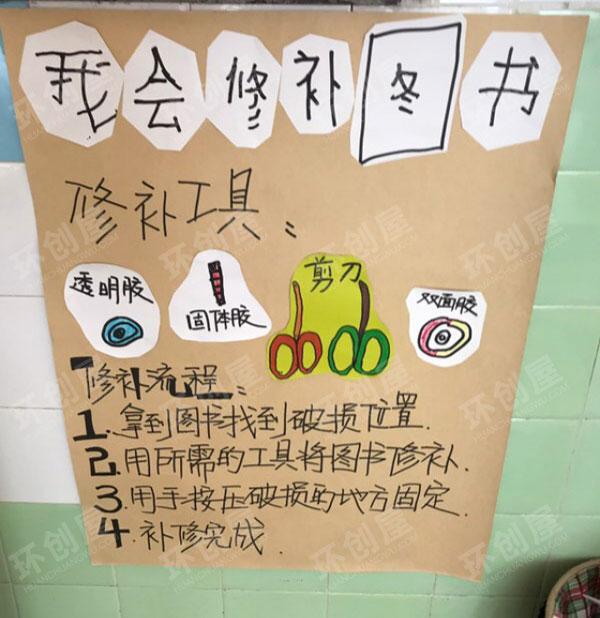 我会修补图书
修补工具：
透明胶
固体胶
剪刀
双面胶
修补流程：
1.拿到图书找到破损位置.
2.用所需的工具将图书修补.
3.用手按压破损的地方固定.
4.补修完成.
环创屋